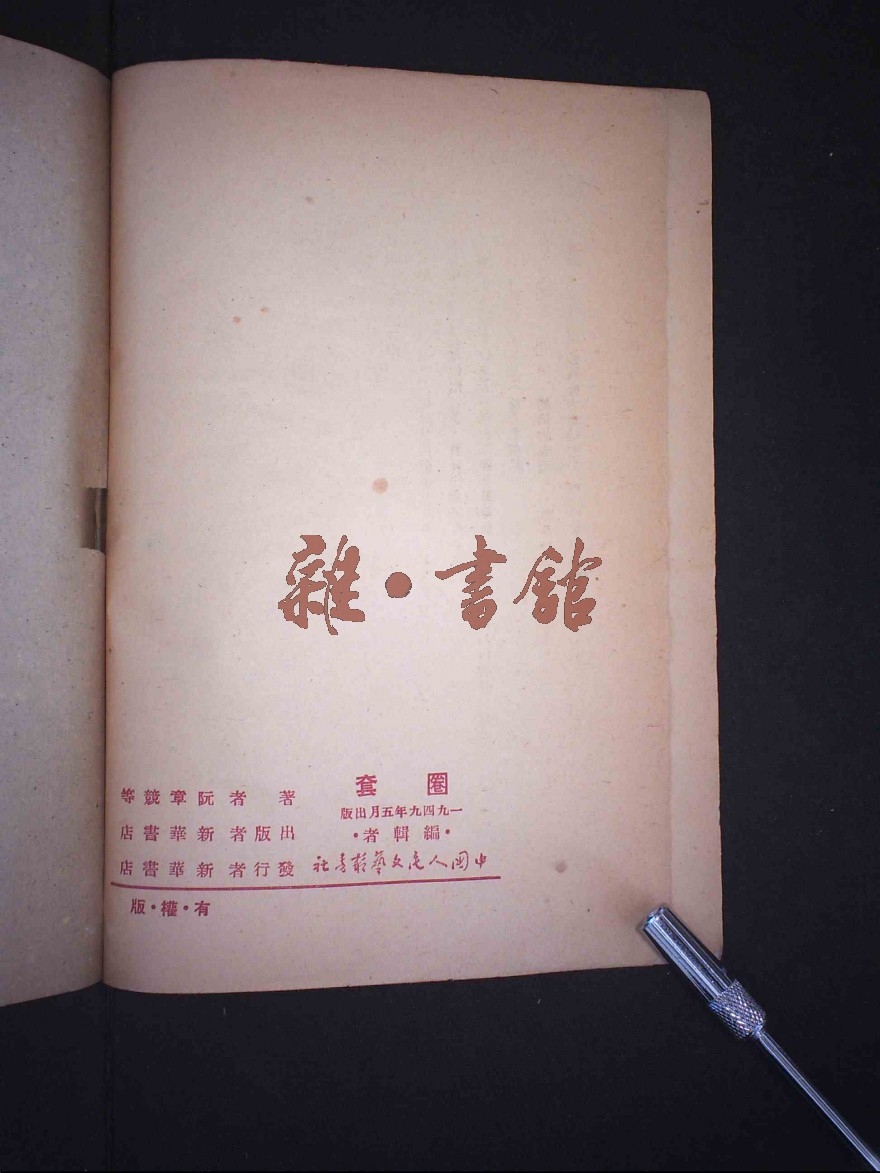 雜·書館
圈套
一九四九年五月出版
·編輯者·
中国人民文藝叢書社
著者 阮章競等
出版者 新華書店
發行者 新華書店
有·權·版